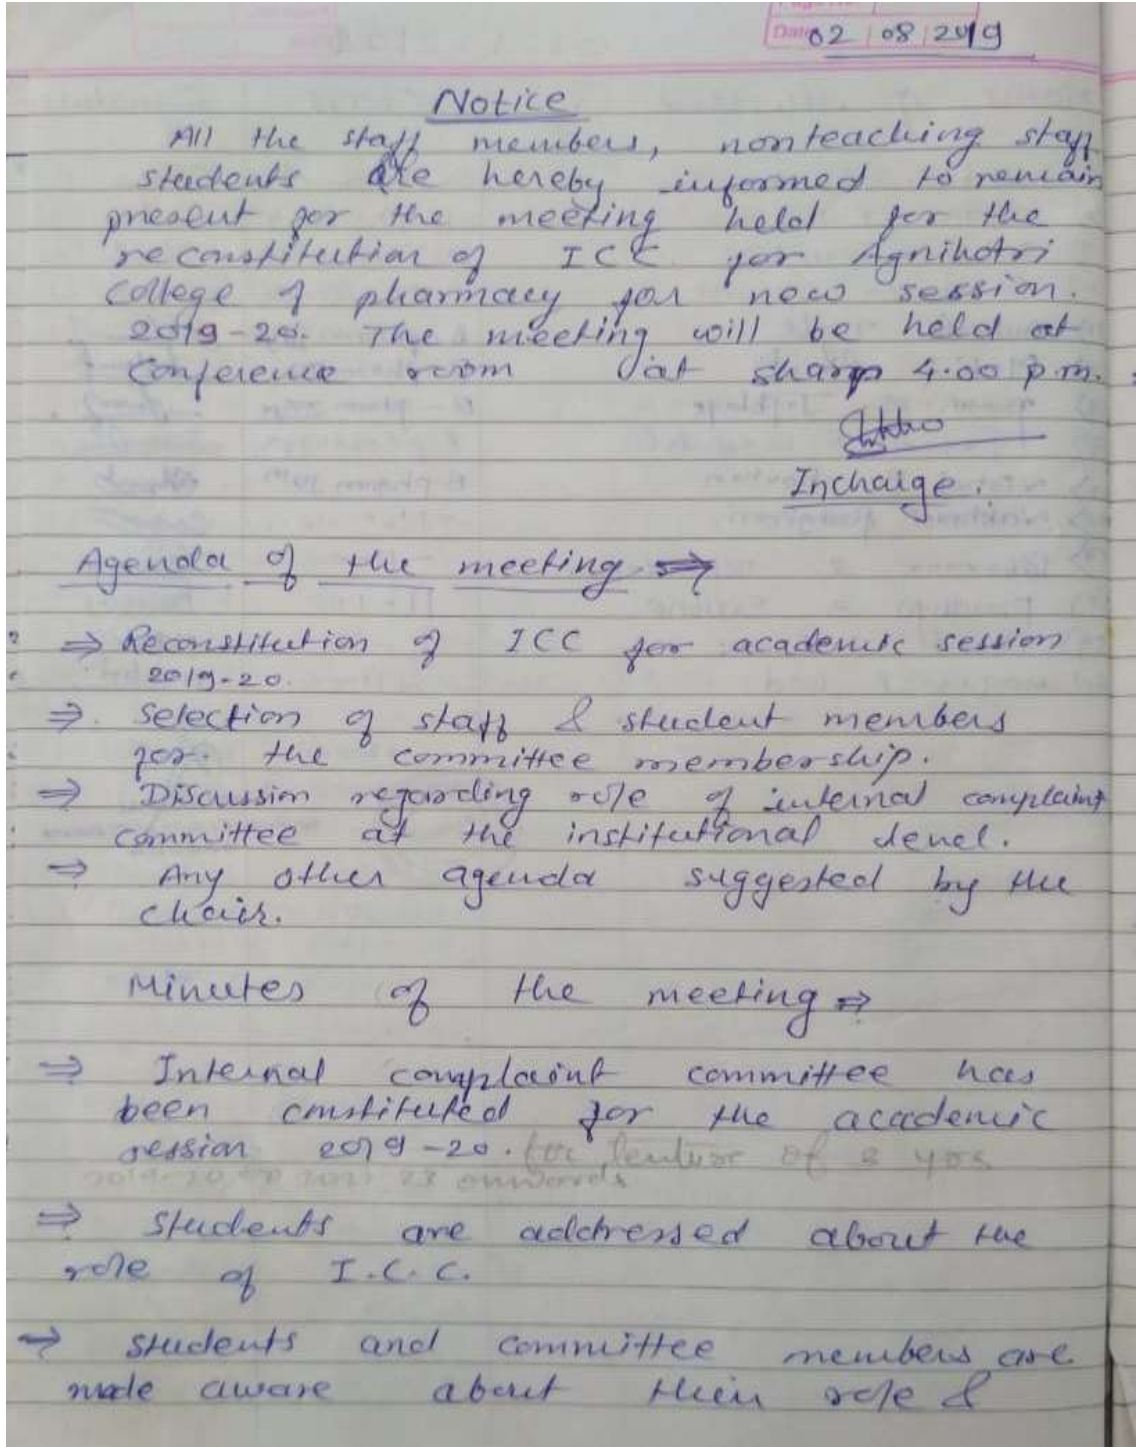 Date 02/08/2019
Notice
All the staff members, nonteaching staff
students are hereby informed to remain
present for the meeting held for the
reconstitution of ICC for Agnihotri
College of pharmacy for new session.
2019-20. The meeting will be held at
Conference room at sharp 4.00 p.m.
Incharge.
Agenda of the meeting ⇒
⇒ Reconstitution of ICC for academic session
2019-20.
⇒. Selection of staff & student members
for. the committee membership.
⇒ Discussion regarding role of internal complaint
committee at the institutional level.
⇒ Any other agenda suggested by the
chair.
Minutes of the meeting ⇒
⇒ Internal complaint committee has
been constituted for the academic
session 2019-20. for of yrs
onwards
⇒ Students are addressed about the
role of I.C.C.
→ students and committee members are
made aware about their role &